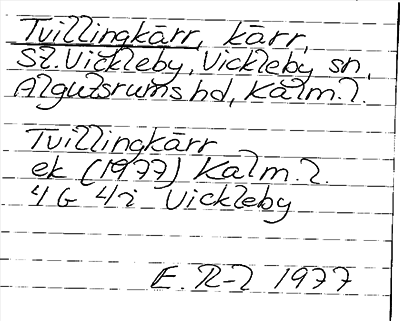 Tvillingkärr, kärr,
St. Vickleby, Vickleby sn,
Algutsrums hd, Kalm. l.
Tvillingkärr
ek (1977) Kalm. l.
4 G 4 i Vickleby
E. R-l 1977